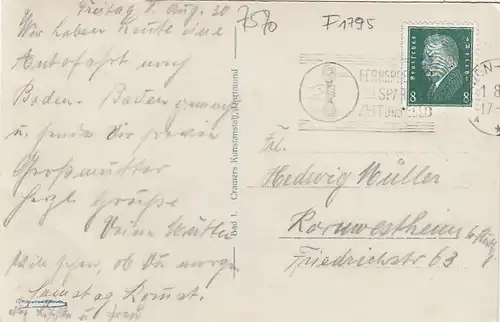 Freitag 1. Aug. 30
Wir haben heute eine
Autofahrt nach
Baden-Baden gemacht
u. senden Dir sowie
Großmutter
herzl. Grüße
Deine Mutter
ob Du morgen
Samstag kommst.
u.
7570
F1795
Bad 1. Cramers Kunstanstalt, Dortmund
FERNSPRE
SPAR
ZEIT UND GELD
Deutsches Reich
8 8
1. 8
17-
Frl.
Hedwig Müller
Kornwestheim b. Stuttg.
Friedrichstr 63